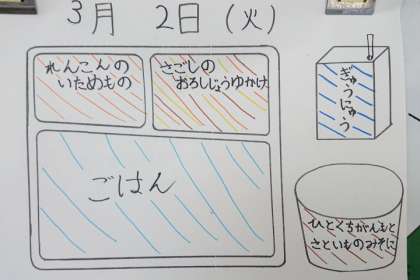 3月 2日(火)
れんこんの
いためもの
さごしの
おろしじょうゆかけ
ぎゅうにゅう
ごはん
ひとくちがんもと
さといものみそに